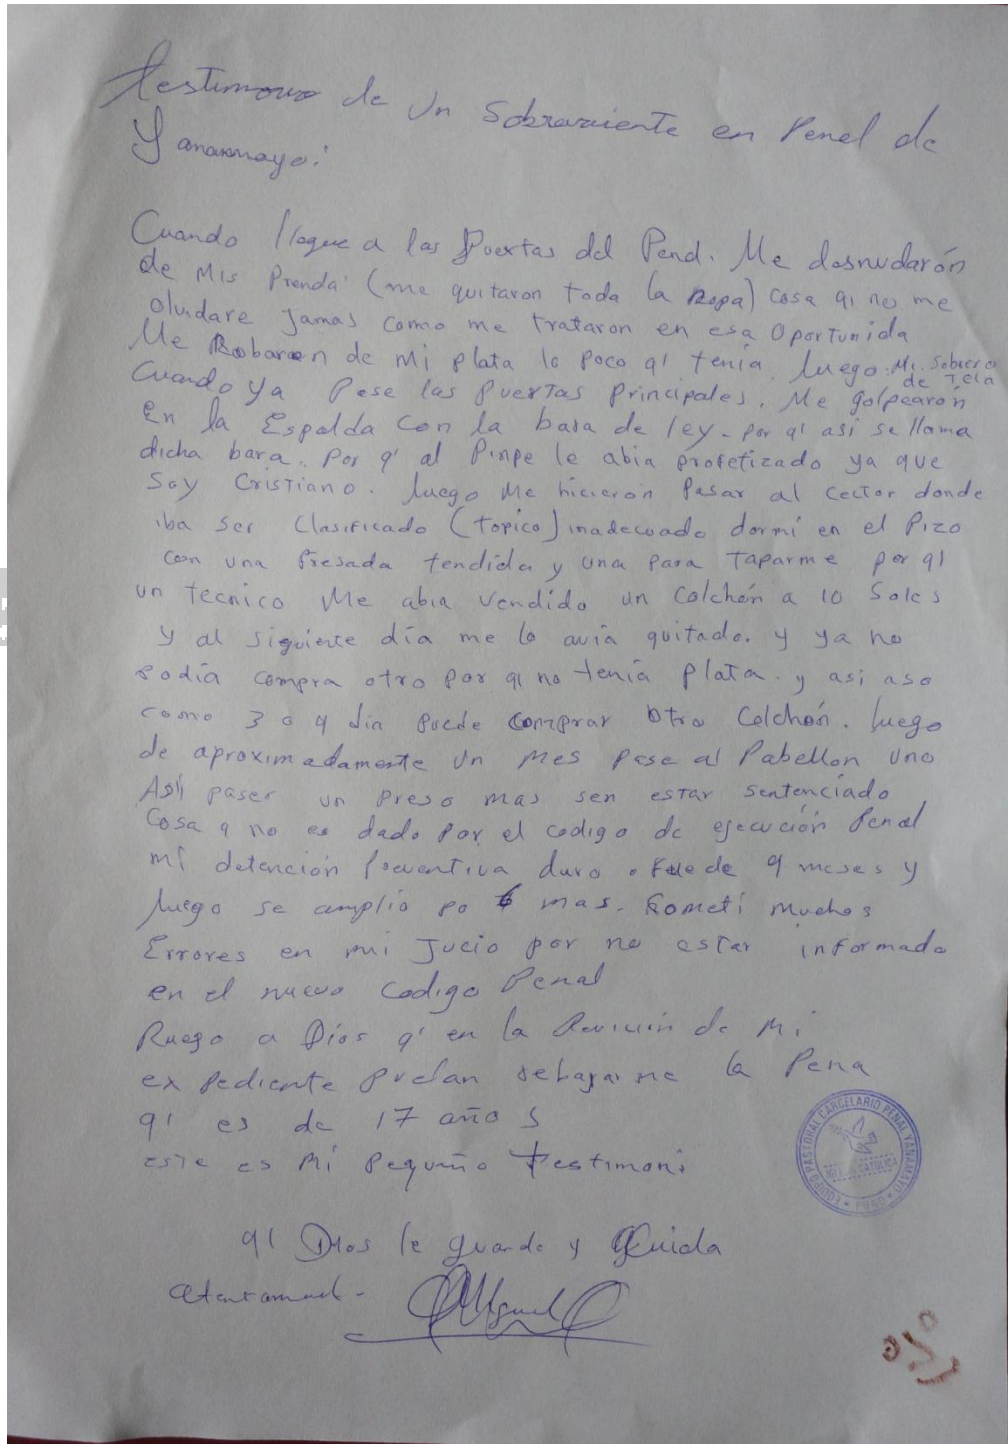 Testimonio de Un Sobreviente en Penel de
Yanamayo:
Cuando llegue a las Puertas del Penal. Me desnudarón
de Mis Prenda (me quitaron toda la ropa) cosa qi no me
oluidare jamas como me trataron en esa Oportunida
Me Robaron de Mi plata lo poco qi tenía. luego. Mi Sobrero
de Tela
Cuando Ya Pase las Puertas Principales. Me gólpearón
En la Espalda con la bara de ley. por qi asi se llama
dicha bara. Por q' al Pinpe le abia profetizado ya que
Soy Cristiano. luego Me hicierón Pasar al Cector donde
iba ser Clasificado (topico) inadecuado dormí en el Pizo
con una fresada tendida y una para Taparme por qi
un tecnico Me abia Vendido un Colchón a 10 Soles
y al siguiente día me lo avía quitado. y ya no
podía compra otro por qi no tenía plata. y asi aso
como 3 o 4 dia puede comprar Otro Colchón. luego
de aproximadamente Un Mes pase al Pabellon Uno
Asii paser un preso mas sen estar sentenciado
Cosa q no es dado por el codigo de ejecución Penal
mi detención Preventiva duro. Fue de 9 meses y
luego se amplió po 6 mas. Cometí muchos
Errores en mi Jucio por no estar informado
en el nuevo Codigo Penal
Ruego a Díos q' en la Revición de Mi
expediente puedan rebajarme la Pena
qi es de 17 año s
este es Mi Pequeño Testimoni
qi Dios le guarde y Cuida
Atentament-
Miguel
EQUIPO PASTORAL CARCELARIO PENAL YANAMAYO
CATOLICA
PUNO